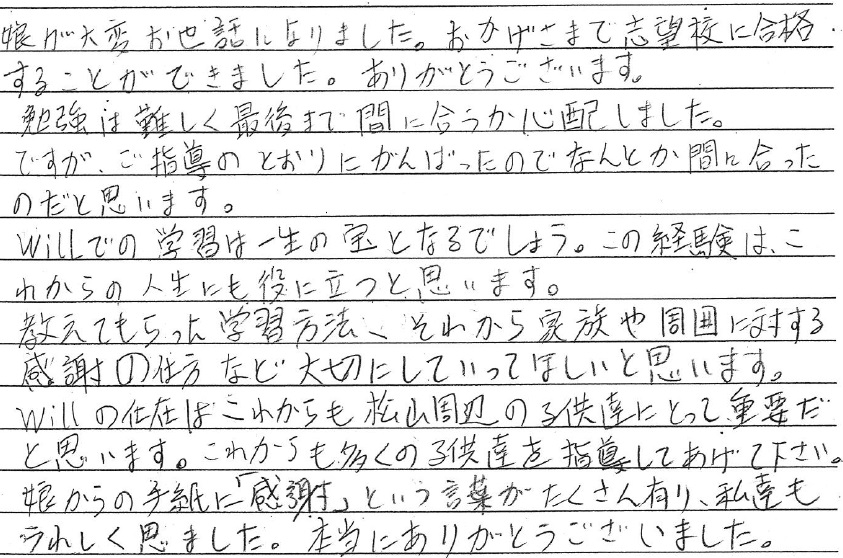 娘が大変お世話になりました。おかげさまで志望校に合格
することができました。ありがとうございます。
勉強は難しく最後まで間に合うか心配しました。
ですが、ご指導のとおりにがんばったのでなんとか間に合った
のだと思います。
Willでの学習は一生の宝となるでしょう。この経験は、こ
れからの人生にも役に立つと思います。
教えてもらった学習方法、それから家族や周囲に対する
感謝の仕方など大切にしていってほしいと思います。
Willの存在はこれからも松山周辺の子供達にとって重要だ
と思います。これからも多くの子供達を指導してあげて下さい。
娘からの手紙に「感謝」という言葉がたくさん有り、私達も
うれしく思ました。本当にありがとうございました。